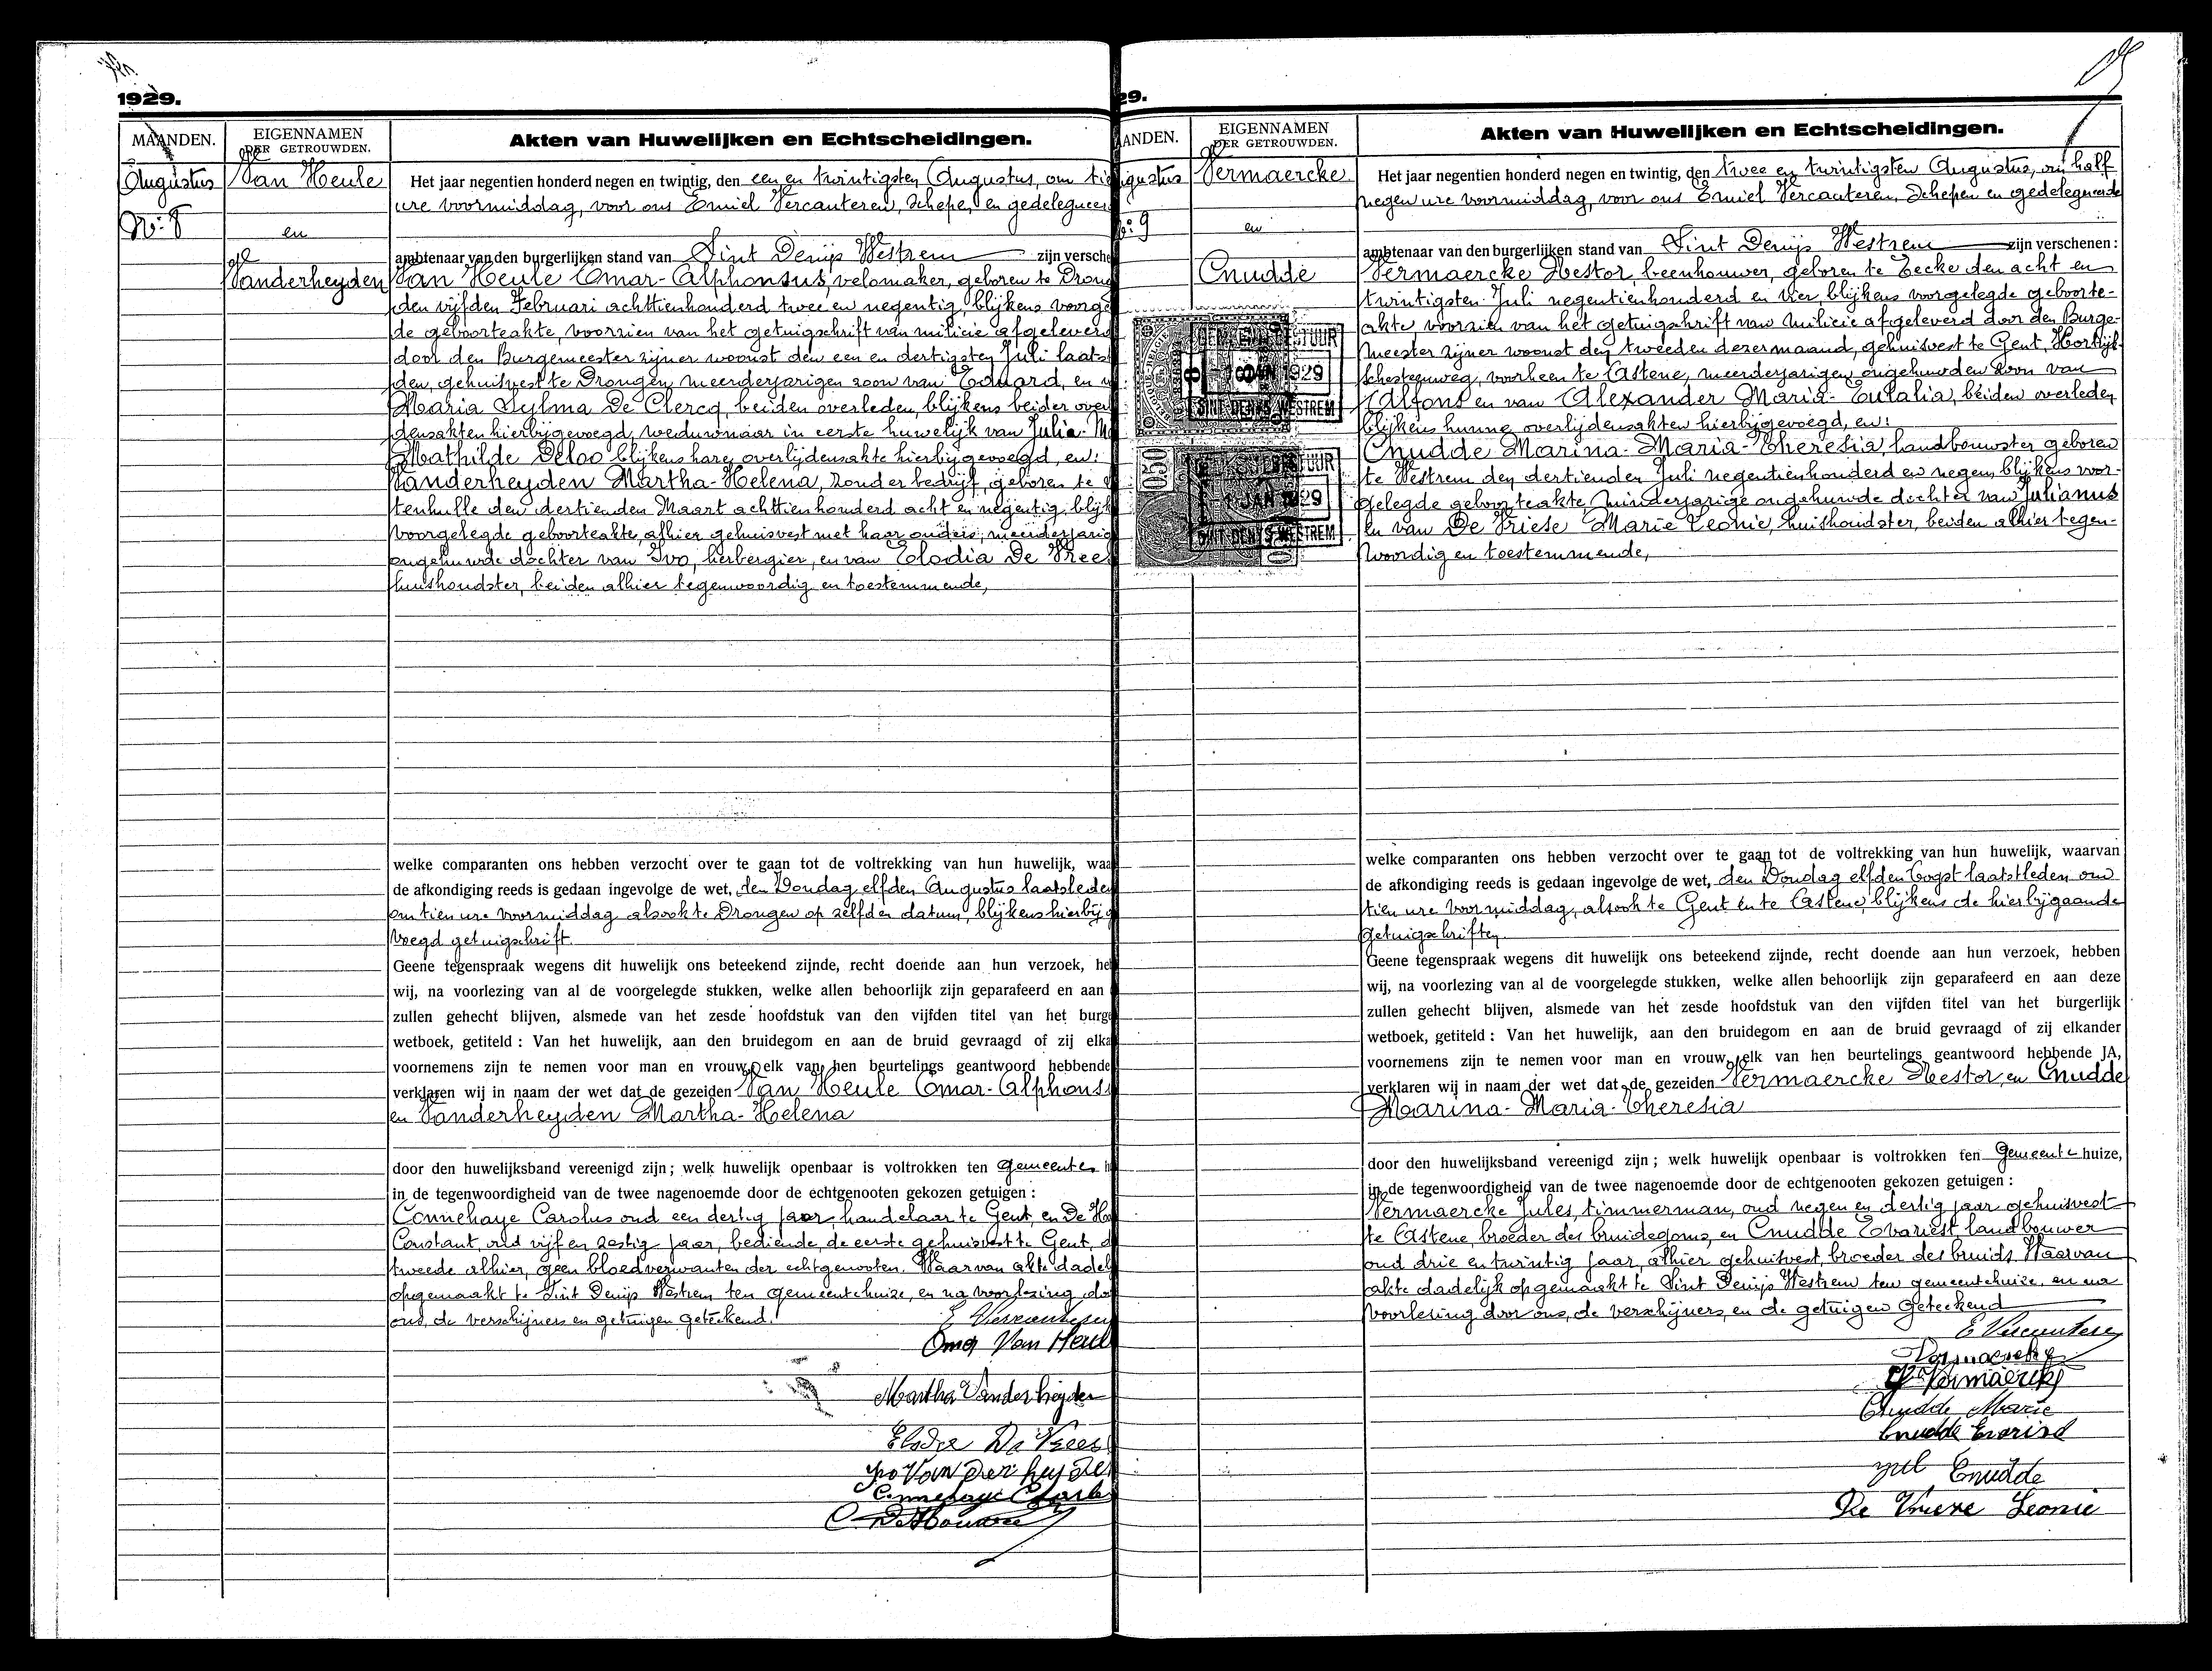 1929.
MAANDEN.
EIGENNAMEN
DER GETROUWDEN.
Akten van Huwelijken en Echtscheidingen.
Augustus
No: 8
Van Heule
en
Vanderheyden
Het jaar negentien honderd negen en twintig, den een en twintigsten Augustus, om ti
ure voormiddag, voor ons Emiel Vercauteren, Schepen en gedelegueer
ambtenaar van den burgerlijken stand van Sint Denijs Westrem zijn versche
Van Heule Omar-Alphonsus, velomaker, geboren te Drong
den vijfden Februari achttienhonderd twee en negentig, blijkens voorge
de geboorteakte, voorzien van het getuigschrift van milicie afgeleverd
door den Burgemeester zijner woonst den een en dertigsten Juli laats
den, gehuisvest te Drongen, meerderjarigen zoon van Eduard, en v
Maria Sylma De Clercq, beiden overleden, blijkens beider over
densakten hierbijgevoegd, weduwnaar in eerste huwelijk van Julia-M
Mathilde Deloo blijkens hare overlijdensakte hierbijgevoegd, en:
Vanderheyden Martha-Helena, zonder bedrijf, geboren te
tenhulle den dertienden Maart achttienhonderd acht en negentig, blijk
voorgelegde geboorteakte, alhier gehuisvest met haar ouders, meerderjarig
ongehuwde dochter van Ivo, herbergier, en van Elodia De Vree
huishoudster, beiden alhier tegenwoordig en toestemmende,
welke comparanten ons hebben verzocht over te gaan tot de voltrekking van hun huwelijk, waa
de afkondiging reeds is gedaan ingevolge de wet, den Zondag elfden Augustus laatsleden
om tien ure voormiddag alsook te Drongen op zelfden datum, blijkens hierbijg
voegd getuigschrift.
Geene tegenspraak wegens dit huwelijk ons beteekend zijnde, recht doende aan hun verzoek, heb
wij, na voorlezing van al de voorgelegde stukken, welke allen behoorlijk zijn geparafeerd en aan
zullen gehecht blijven, alsmede van het zesde hoofdstuk van den vijfden titel van het burge
wetboek, getiteld : Van het huwelijk, aan den bruidegom en aan de bruid gevraagd of zij elka
voornemens zijn te nemen voor man en vrouw, elk van hen beurtelings geantwoord hebbende
verklaren wij in naam der wet dat de gezeiden Van Heule Omar-Alphons
en Vanderheyden Martha-Helena
door den huwelijksband vereenigd zijn ; welk huwelijk openbaar is voltrokken ten Gemeente h
in de tegenwoordigheid van de twee nagenoemde door de echtgenooten gekozen getuigen :
Connehaye Carolus oud een dertig jaar, handelaar te Gent, en De Ho
Constant, oud vijf en zestig jaar, bediende, de eerste gehuisvest te Gent, d
tweede alhier, geen bloedverwanten der echtgenooten. Waarvan akte dadel
opgemaakt te Sint Denijs Westrem ten gemeentehuize, en na voorlezing do
ons, de verschijners en getuigen geteekend.
E Vercauteren
Omer Van Heul
Martha Vanderheyden
Elodie De Vrees
Ivo Van Der heyden
Connehaye Charle
C. De Houwer
29.
ANDEN.
EIGENNAMEN
DER GETROUWDEN.
Akten van Huwelijken en Echtscheidingen.
gustus
o: 9
Vermaercke
en
Cnudde
GEMEENTEBESTUUR
JAN 1929
SINT-DENYS-WESTREM
0.50
BESTUUR
JAN 1929
SINT-DENYS-WESTREM
Het jaar negentien honderd negen en twintig, den twee en twintigsten Augustus, om half
negen ure voormiddag, voor ons Emiel Vercauteren, Schepen en gedelegueerde
ambtenaar van den burgerlijken stand van Sint Denijs Westrem zijn verschenen :
Vermaercke Nestor, beenhouwer, geboren te Eecke den acht en
twintigsten Juli negentienhonderd en vier, blijkens voorgelegde geboorte-
akte, voorzien van het getuigschrift van milicie afgeleverd door den Burge-
meester zijner woonst den tweeden dezer maand, gehuisvest te Gent, Kortrijk-
schesteenweg, voorheen te Astene, meerderjarigen ongehuwden zoon van
Alfons en van Alexander Maria-Eulalia, beiden overleden
blijkens hunne overlijdensakten hierbijgevoegd, en:
Cnudde Marina-Maria-Theresia, landbouwster geboren
te Westrem den dertienden Juli negentienhonderd en negen, blijkens voor-
gelegde geboorteakte, minderjarige ongehuwde dochter van Julianus
en van De Vriese Marie Leonie, huishoudster, beiden alhier tegen-
woordig en toestemmende,
welke comparanten ons hebben verzocht over te gaan tot de voltrekking van hun huwelijk, waarvan
de afkondiging reeds is gedaan ingevolge de wet, den Zondag elfden Oogst laatstleden om
tien ure voormiddag, alsook te Gent en te Astene, blijkens de hierbijgaande
getuigschriften.
Geene tegenspraak wegens dit huwelijk ons beteekend zijnde, recht doende aan hun verzoek, hebben
wij, na voorlezing van al de voorgelegde stukken, welke allen behoorlijk zijn geparafeerd en aan deze
zullen gehecht blijven, alsmede van het zesde hoofdstuk van den vijfden titel van het burgerlijk
wetboek, getiteld : Van het huwelijk, aan den bruidegom en aan de bruid gevraagd of zij elkander
voornemens zijn te nemen voor man en vrouw, elk van hen beurtelings geantwoord hebbende JA,
verklaren wij in naam der wet dat de gezeiden Vermaercke Nestor, en Cnudde
Marina-Maria-Theresia
door den huwelijksband vereenigd zijn ; welk huwelijk openbaar is voltrokken ten Gemeente huize,
in de tegenwoordigheid van de twee nagenoemde door de echtgenooten gekozen getuigen :
Vermaercke Jules, timmerman, oud negen en dertig jaar gehuisvest
te Astene, broeder des bruidegoms, en Cnudde Evariest, landbouwer
oud drie en twintig jaar, alhier gehuisvest, broeder des bruids. Waarvan
akte dadelijk opgemaakt te Sint Denijs Westrem ten gemeentehuize, en na
voorlezing door ons, de verschijners, en de getuigen geteekend
E Vercauteren
Vermaercke
Vermaercke
Cnudde Marie
Cnudde Evarist
Jul Cnudde
De Vriese Leonie